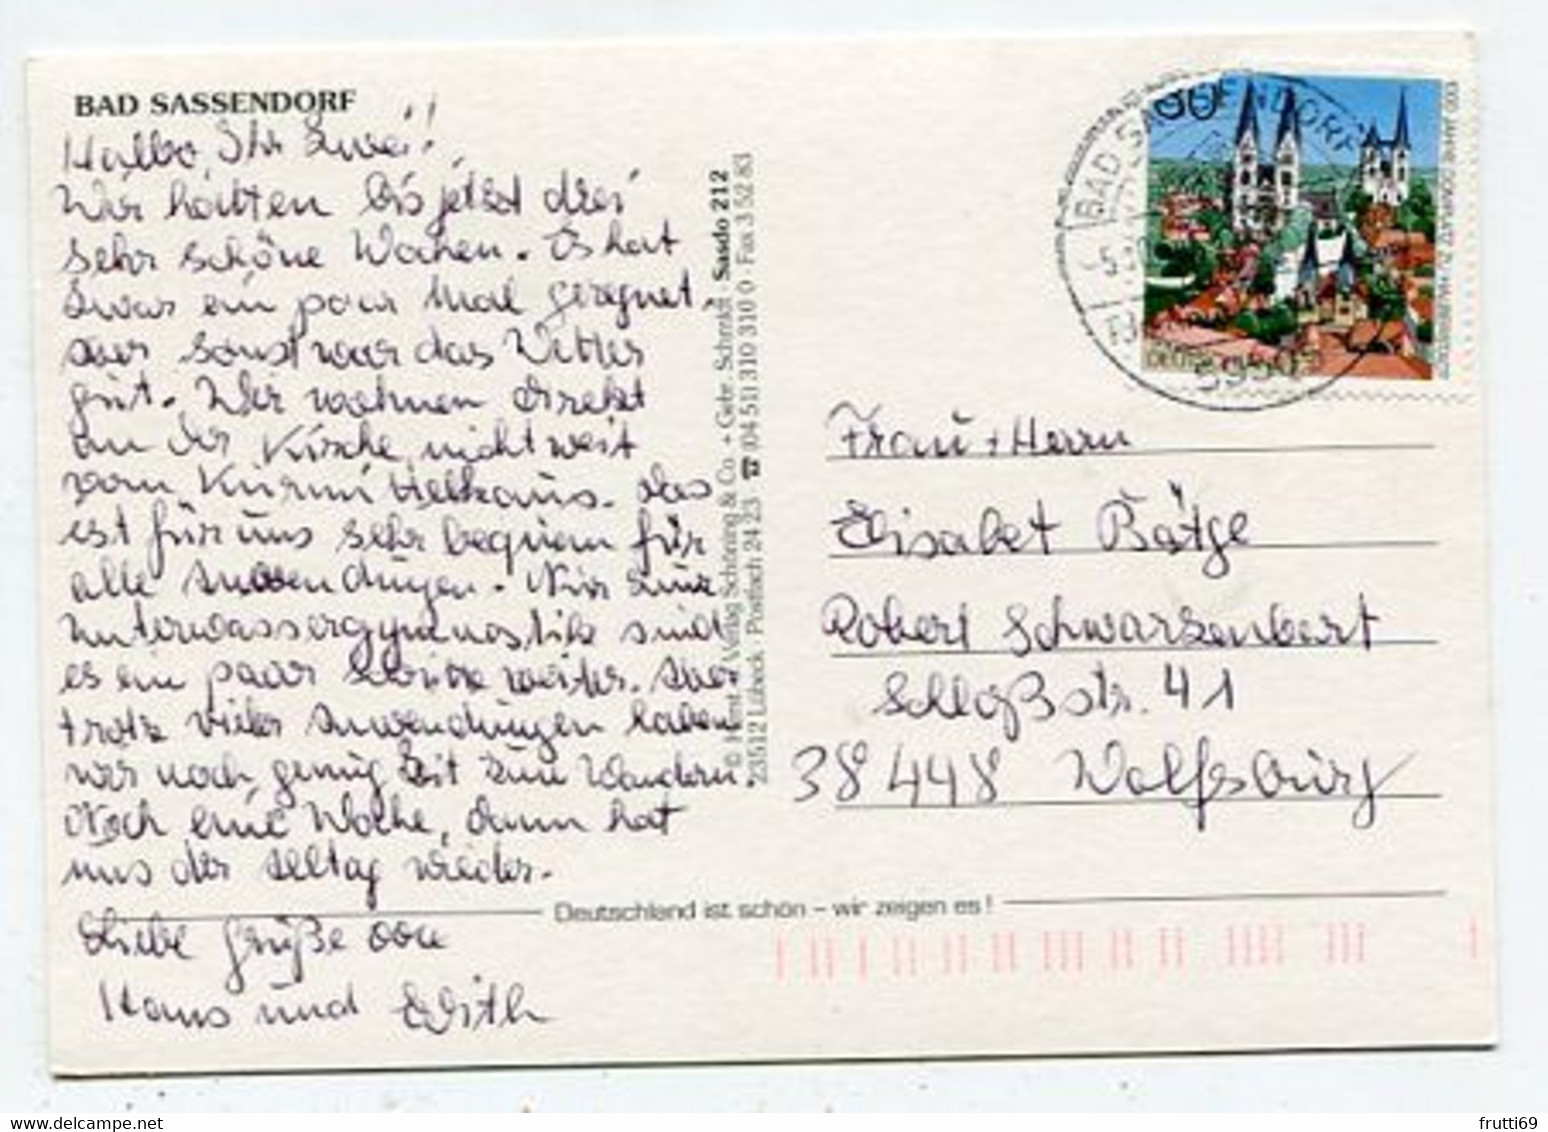 BAD SASSENDORF
Hallo, Ihr Zwei!!
Wir hatten bis jetzt drei
sehr schöne Wochen. Es hat
zwar ein paar Mal geregnet,
aber sonst war das Wetter
gut. Wir wohnen direkt
an der Kirche, nicht weit
vom Kurmittelhaus. Das
ist für uns sehr bequem für
alle Anwendungen. Nur zur
Unterwassergymnastik sind
es ein paar Schritte weiter. Aber
trotz vieler Anwendungen haben
wir noch genug Zeit zum Wandern.
Noch eine Woche, dann hat
uns der Alltag wieder.
Liebe Grüße von
Hans und Edith
© Herst.: Verlag Schöning & Co. + Gebr. Schmidt Sasdo 212
23512 Lübeck Postfach 24 23 ☎ (04 51) 310 310 0 · Fax 3 52 83
Deutschland ist schön – wir zeigen es!
80
BAD SASSENDORF
59505
Frau + Herrn
Elisabet Rätge
Robert Schwarzenbert
Schloßstr. 41
38448 Wolfsburg
frutti69